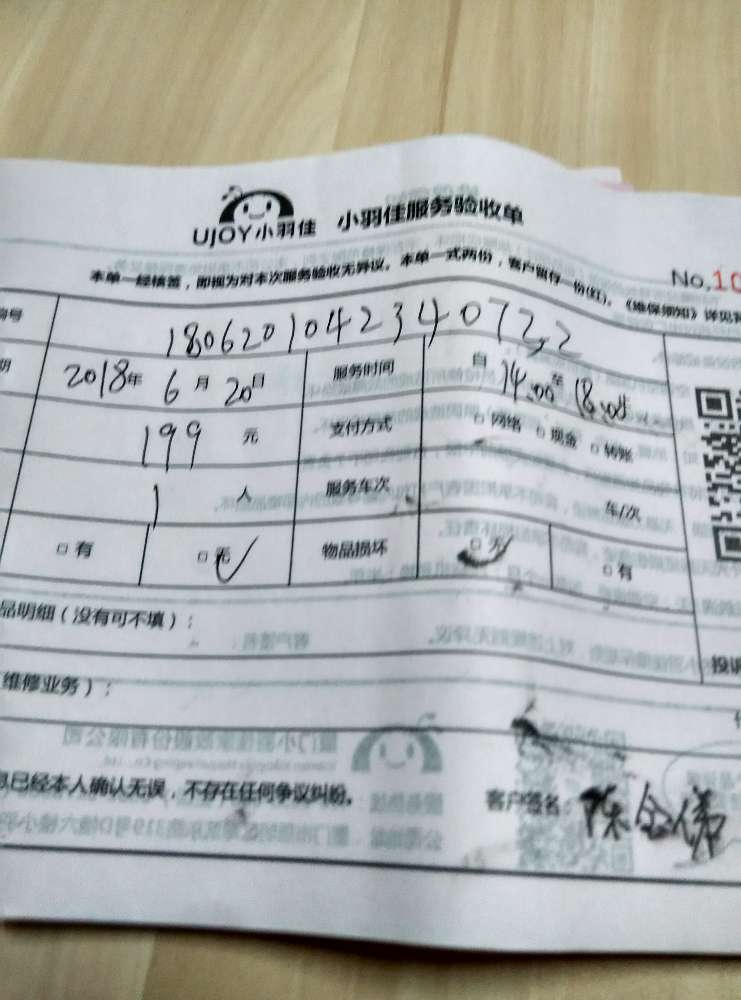 UJOY小羽佳 小羽佳服务验收单
No.10
本单一经核签，即视为对本次服务验收无异议。本单一式两份，客户留存一份(红)。《维保须知》详见
180620104234072,2
2018年 6月 20日 服务时间 自14:00至18:00
199元 支付方式 □网络 □现金 □转账
1人 服务车次 车/次
□有 □无 ✓ 物品损坏 □无 ✓ □有
品明细（没有可不填）：
投诉
维修业务）：
息已经本人确认无误，不存在任何争议纠纷。 客户签名：陈金